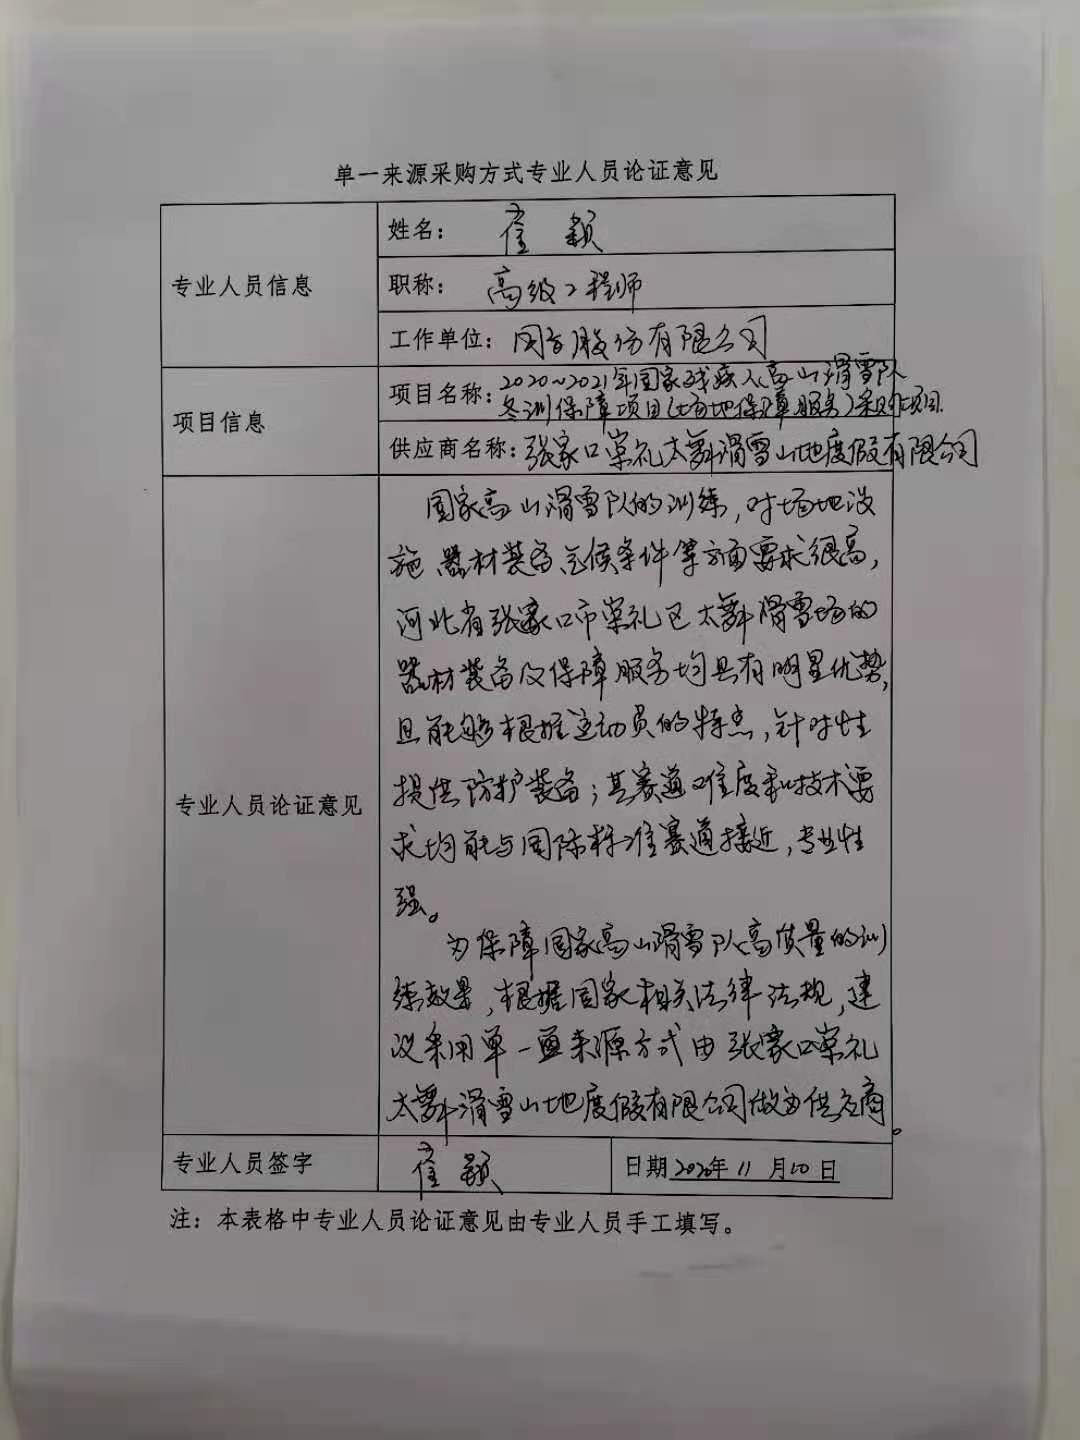 单一来源采购方式专业人员论证意见
专业人员信息
姓名： 崔 颖
职称： 高级工程师
工作单位：股份有限公司
项目信息
项目名称：2020~2021年国家残疾人高山滑雪队
冬训保障项目(场地保障服务)采购项目.
供应商名称：张家口崇礼太舞滑雪山地度假有限公司
专业人员论证意见
国家高山滑雪队的训练，对场地设
施、器材装备、气候条件等方面要求很高，
河北省张家口市崇礼区太舞滑雪场的
器材装备及保障服务均具有明显优势，
且能够根据运动员的特点，针对性
提供防护装备；其赛道难度和技术要
求均能与国际标准赛道接近，专业性
强。
为保障国家高山滑雪队高质量的训
练效果，根据国家相关法律法规，建
议采用单一来源方式由张家口崇礼
太舞滑雪山地度假有限公司做为供应商。
专业人员签字
崔 颖
日期 2020年 11 月 10 日
注：本表格中专业人员论证意见由专业人员手工填写。